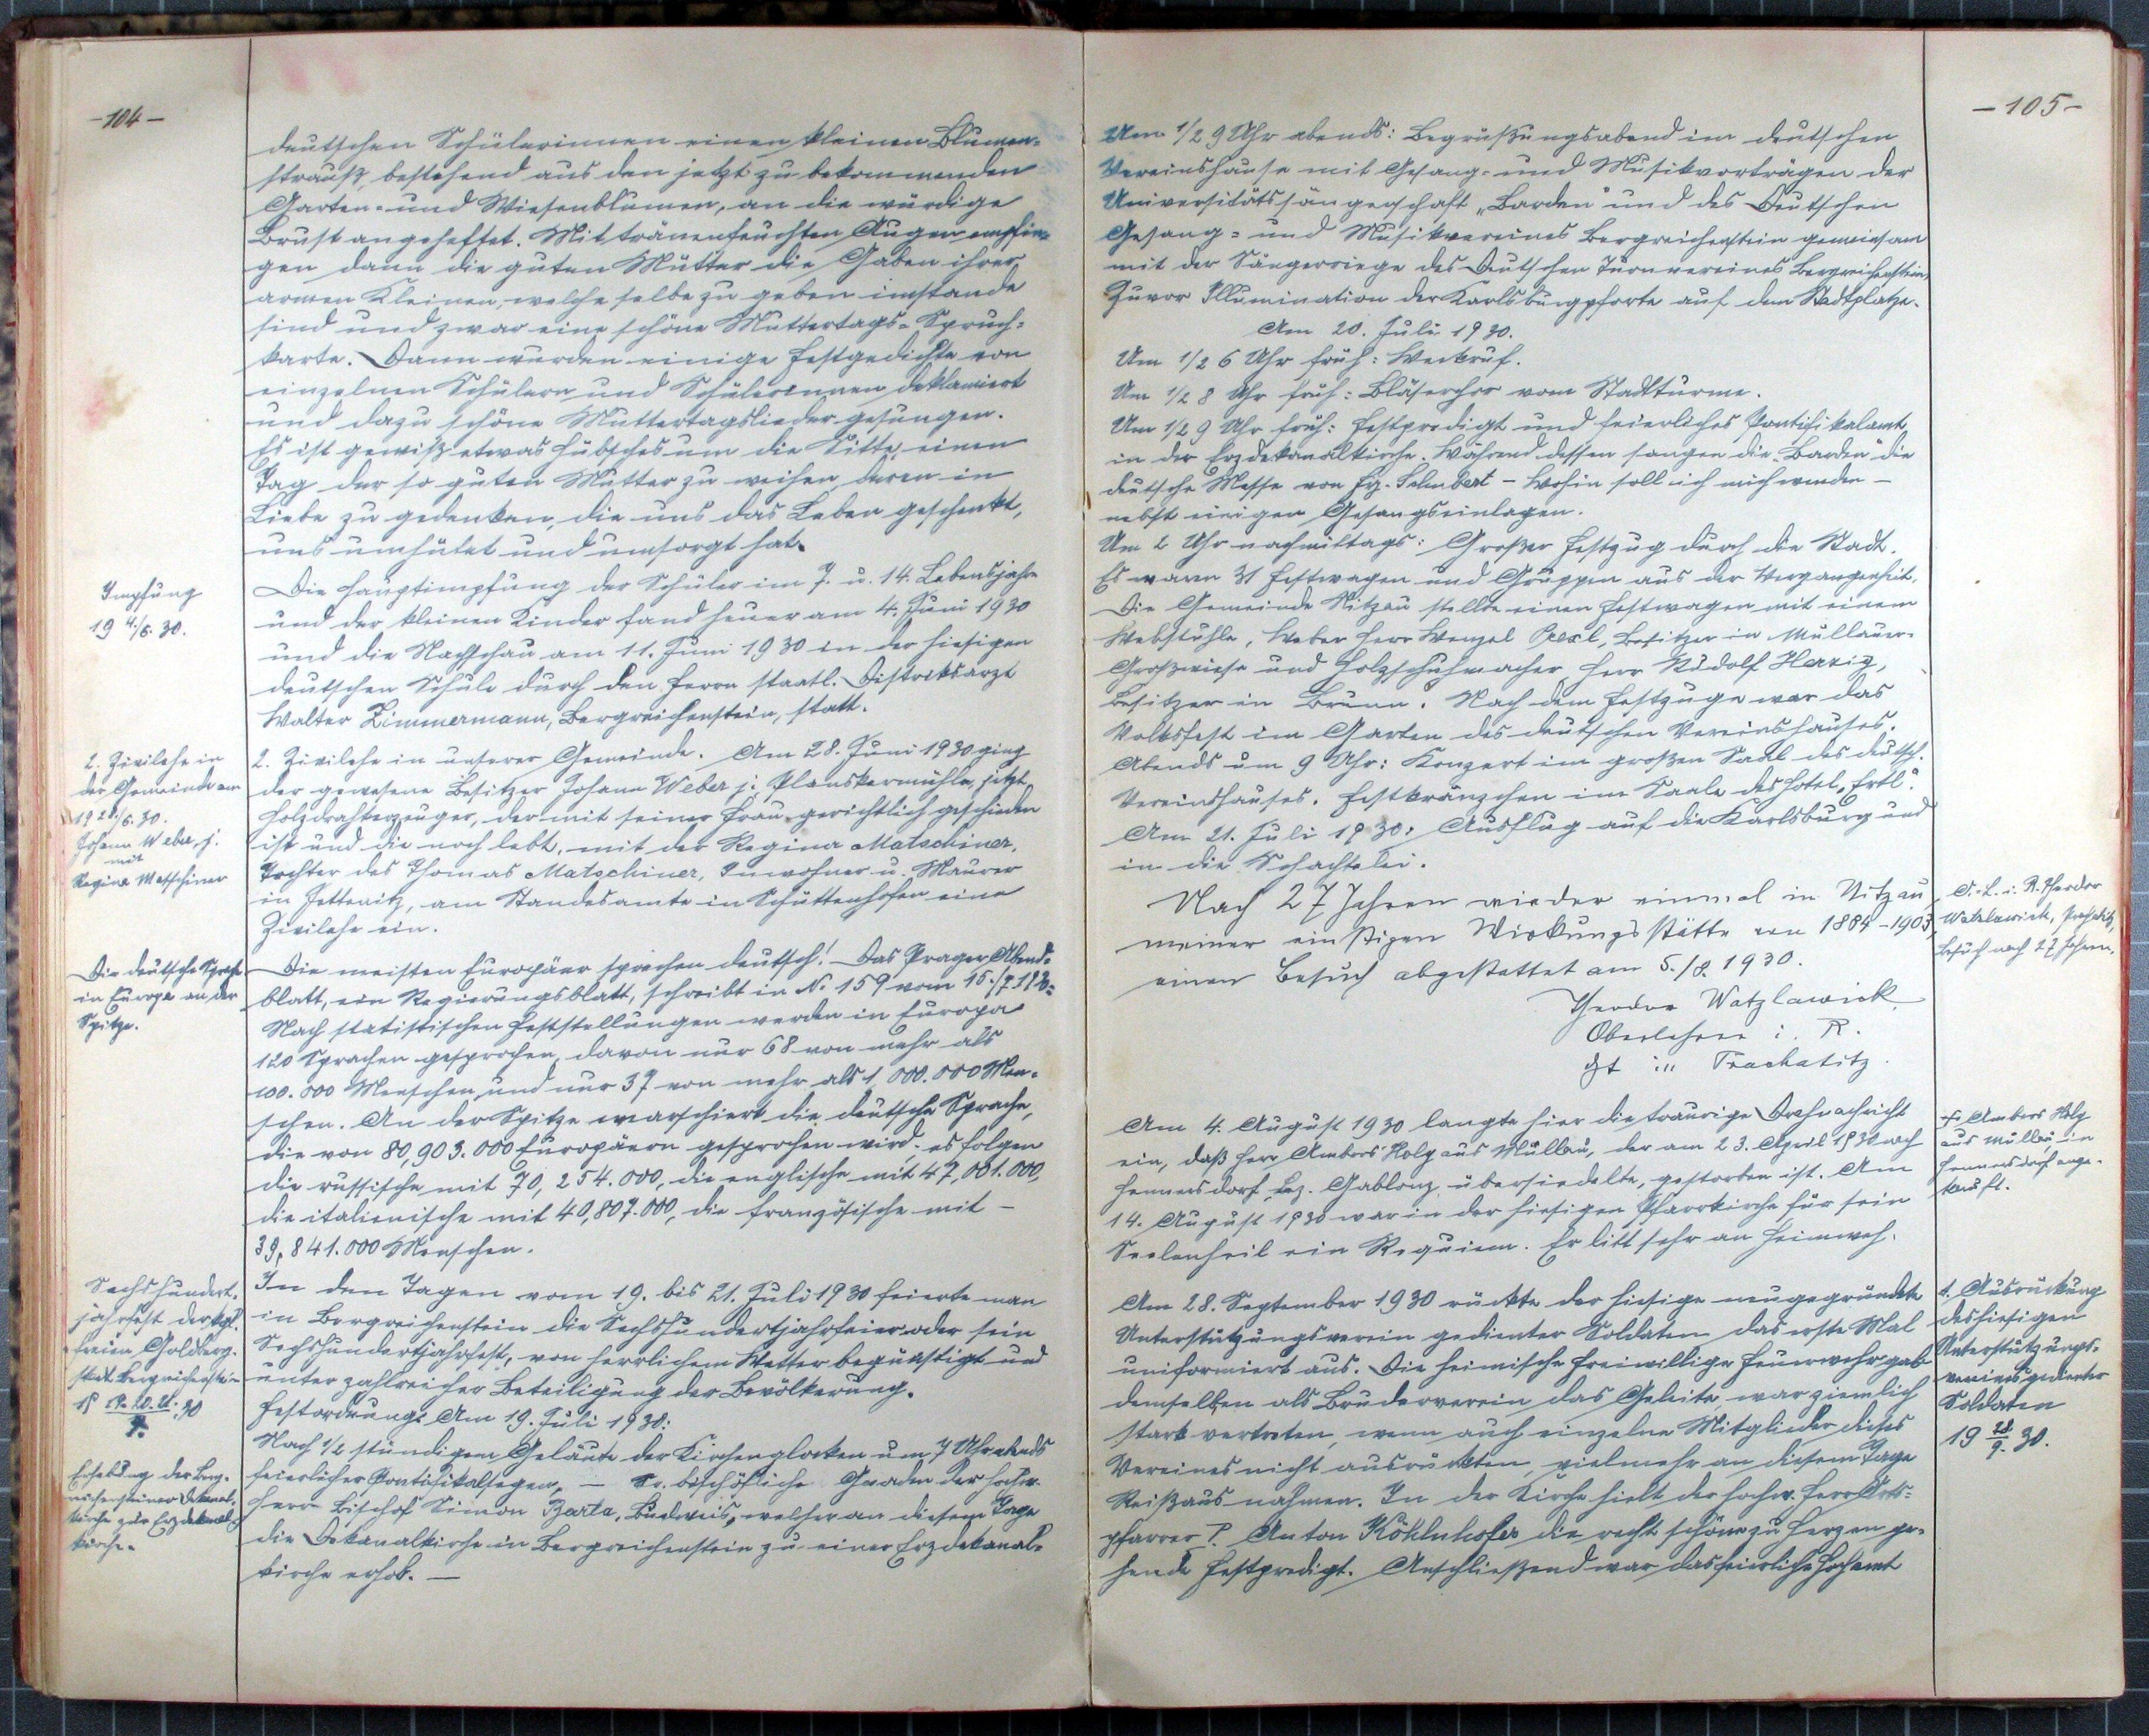 -104-
deutschen Schülerinnen einen kleinen Blumen-
strauß, bestehend aus den jetzt zu bekommenden
Garten- und Wiesenblumen, an die würdige
Brust angeheftet. Mit tränenfeuchten Augen empfin-
gen dann die guten Mütter die Gaben ihrer
armen Kleinen, welche selbe zu geben imstande
sind und zwar eine schöne Muttertags-Spruch-
karte. Dann wurden einige Festgedichte von
einzelnen Schülern und Schülerinnen deklamiert
und dazu schöne Muttertagslieder gesungen.
Es ist gewiß etwas Hübsches um die Sitte, einen
Tag der so guten Mutter zu weihen, deren in
Liebe zu gedenken, die uns das Leben geschenkt,
uns umhütet und umsorgt hat.
Impfung
19 4./6. 30.
Die Hauptimpfung der Schüler im 7. u. 14. Lebensjahre
und der kleinen Kinder fand heuer am 4. Juni 1930
und die Nachschau am 11. Juni 1930 in der hiesigen
deutschen Schule durch den Herrn staatl. Distriktsarzt
Walter Zimmermann, Bergreichenstein, statt.
2. Zivilehe in
der Gemeinde am
19 28./6. 30.
Johann Weber, j.
mit
Regina Matschiner
2. Zivilehe in unserer Gemeinde. Am 28. Juni 1930 ging
der gewesene Besitzer Johann Weber j. Planskermühle, jetzt
Holzdrahterzeuger, der mit seiner Frau gerichtlich geschieden
ist und die noch lebt, mit der Regina Matschiner,
Tochter des Thomas Matschiner, Inwohner u. Maurer
in Jettenitz, am Standesamte in Schüttenhofen eine
Zivilehe ein.
Die deutsche Sprache
in Europa an der
Spitze.
Die meisten Europäer sprechen deutsch! Das Prager Abend-
blatt, ein Regierungsblatt, schreibt in No 159 vom 15./7. 1930:
Nach statistischen Feststellungen werden in Europa
120 Sprachen gesprochen, davon nur 68 von mehr als
100.000 Menschen und nur 37 von mehr als 1,000.000 Men-
schen. An der Spitze marschiert die deutsche Sprache,
die von 80,903.000 Europäern gesprochen wird; es folgen
die russische mit 70,254.000, die englische mit 47,001.000,
die italienische mit 40,807.000, die französische mit -
39,841.000 Menschen.
Sechshundert-
jahrfest der kgl.
freien Goldberg-
stadt Bergreichenstein
19 19.20.21./7. 30
In den Tagen vom 19. bis 21. Juli 1930 feierte man
in Bergreichenstein die Sechshundertjahrfeier oder sein
Sechshundertjahrfest, von herrlichem Wetter begünstigt und
unter zahlreicher Beteiligung der Bevölkerung.
Festordnung: Am 19. Juli 1930:
Nach 1/2 stündigem Geläute der Kirchenglocken um 7 Uhr abends
feierlicher Pontifikalsegen. — Sr. bischöfliche Gnaden der hochw.
Herr Bischof Simon Barta, Budweis, welcher an diesem Tage
die Dekanalkirche in Bergreichenstein zu einer Erzdekanal-
kirche erhob. —
Erhebung der Berg-
reichensteiner Dekanal-
kirche zur Erzdekanal-
kirche.
-105-
Um 1/2 9 Uhr abends: Begrüßungsabend im deutschen
Vereinshause mit Gesang- und Musikvorträgen der
Universitätssängerschaft „Barden" und des Deutschen
Gesang- und Musikvereines Bergreichenstein gemeinsam
mit der Sängerriege des Deutschen Turnvereines Bergreichenstein,
Zuvor Illumination der Karlsburgpforte auf dem Stadtplatze.
Am 20. Juli 1930.
Um 1/2 6 Uhr früh: Weckruf.
Um 1/2 8 Uhr früh: Bläserchor vom Stadtturme.
Um 1/2 9 Uhr früh: Festpredigt und feierliches Pontifikalamt
in der Erzdekanalkirche. Während dessen sangen die „Barden" die
deutsche Messe von Fz. Schubert - Wohin soll ich mich wenden -
nebst einigen Gesangseinlagen.
Um 2 Uhr nachmittags: Großer Festzug durch die Stadt.
Es waren 31 Festwagen und Gruppen aus der Vergangenheit.
Die Gemeinde Nitzau stellte einen Festwagen mit einem
Webstuhle, Weber Herr Wenzel Pexl, Besitzer in Müllauer-
Großwiese und Holzschuhmacher Herr Rudolf Herzig,
Besitzer in Brunn. Nach dem Festzuge war das
Volksfest im Garten des deutschen Vereinshauses.
Abends um 9 Uhr: Konzert im großen Saal des deutsch.
Vereinshauses. Festkränzchen im Saale des Hotel „Ertl".
Am 21. Juli 1930: Ausflug auf die Karlsburg und
in die Schachtelei.
Nach 27 Jahren wieder einmal in Nitzau,
meiner einstigen Wirkungsstätte von 1884-1903,
einen Besuch abgestattet am 5./8. 1930.
Theodor Watzlawick
Oberlehrer i. R.
zt in Frachatitz.
O.-L. i. R. Theodor
Watzlawick,
Besuch nach 27 Jahren.
Am 4. August 1930 langte hier die traurige Drahtnachricht
ein, daß Herr Ambros Holz aus Müllau, der am 23. April 1930 nach
Hennersdorf, Bez. Gablonz übersiedelte, gestorben ist. Am
14. August 1930 war in der hiesigen Pfarrkirche für sein
Seelenheil ein Requiem. Er litt sehr an Heimweh.
† Ambros Holz
aus Müllau, in
Hennersdorf ange-
kauft.
Am 28. September 1930 rückte der hiesige neugegründete
Unterstützungsverein gedienter Soldaten das erste Mal
uniformiert aus. Die heimische freiwillige Feuerwehr gab
demselben als Bruderverein das Geleite, war ziemlich
stark vertreten, wenn auch einzelne Mitglieder dieses
Vereines nicht ausrückten, vielmehr an diesem Tage
Reißaus nahmen. In der Kirche hielt der hochw. Herr Orts-
pfarrer P. Anton Köhlnhofer die recht schöne zu Herzen ge-
hende Festpredigt. Anschließend war das feierliche Hochamt
1. Ausrückung
des hiesigen
Unterstützungs-
vereines gedienter
Soldaten
19 28./9. 30.